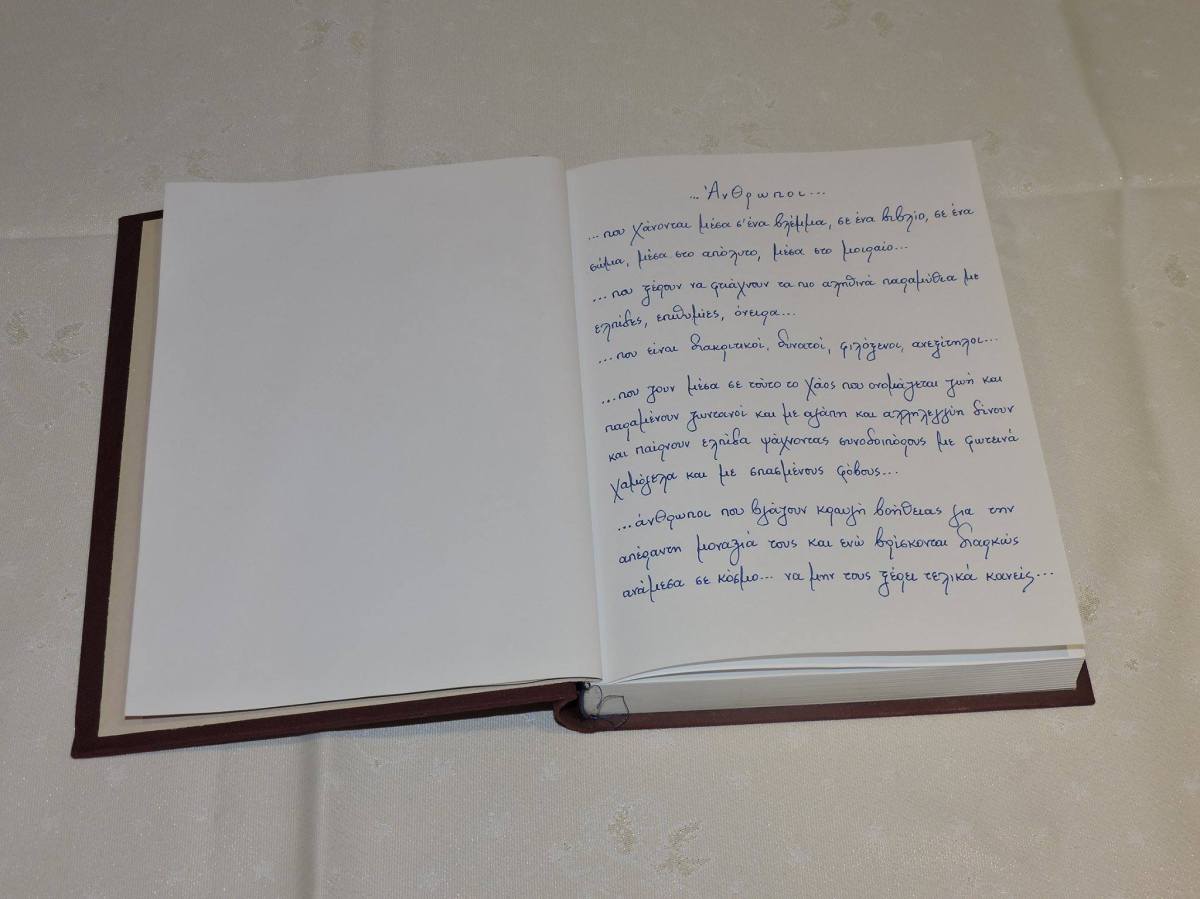 ... Άνθρωποι ...
... που χάνονται μέσα σ' ένα βλέμμα, σε ένα βιβλίο, σε ένα
σώμα, μέσα στο απόλυτο, μέσα στο μοιραίο...
... που ξέρουν να φτιάχνουν τα πιο αληθινά παραμύθια με
ελπίδες, επιθυμίες, όνειρα...
... που είναι διακριτικοί, δυνατοί, φιλόξενοι, ανεξίτηλοι...
... που ζουν μέσα σε τούτο το χάος που ονομάζεται ζωή και
παραμένουν ζωντανοί και με αγάπη και αλληλεγγύη δίνουν
και παίρνουν ελπίδα ψάχνοντας συνοδοιπόρους με φωτεινά
χαμόγελα και με σπασμένους φόβους...
... άνθρωποι που βγάζουν κραυγή βοήθειας για την
απέραντη μοναξιά τους και ενώ βρίσκονται διαρκώς
ανάμεσα σε κόσμο... να μην τους ξέρει τελικά κανείς...